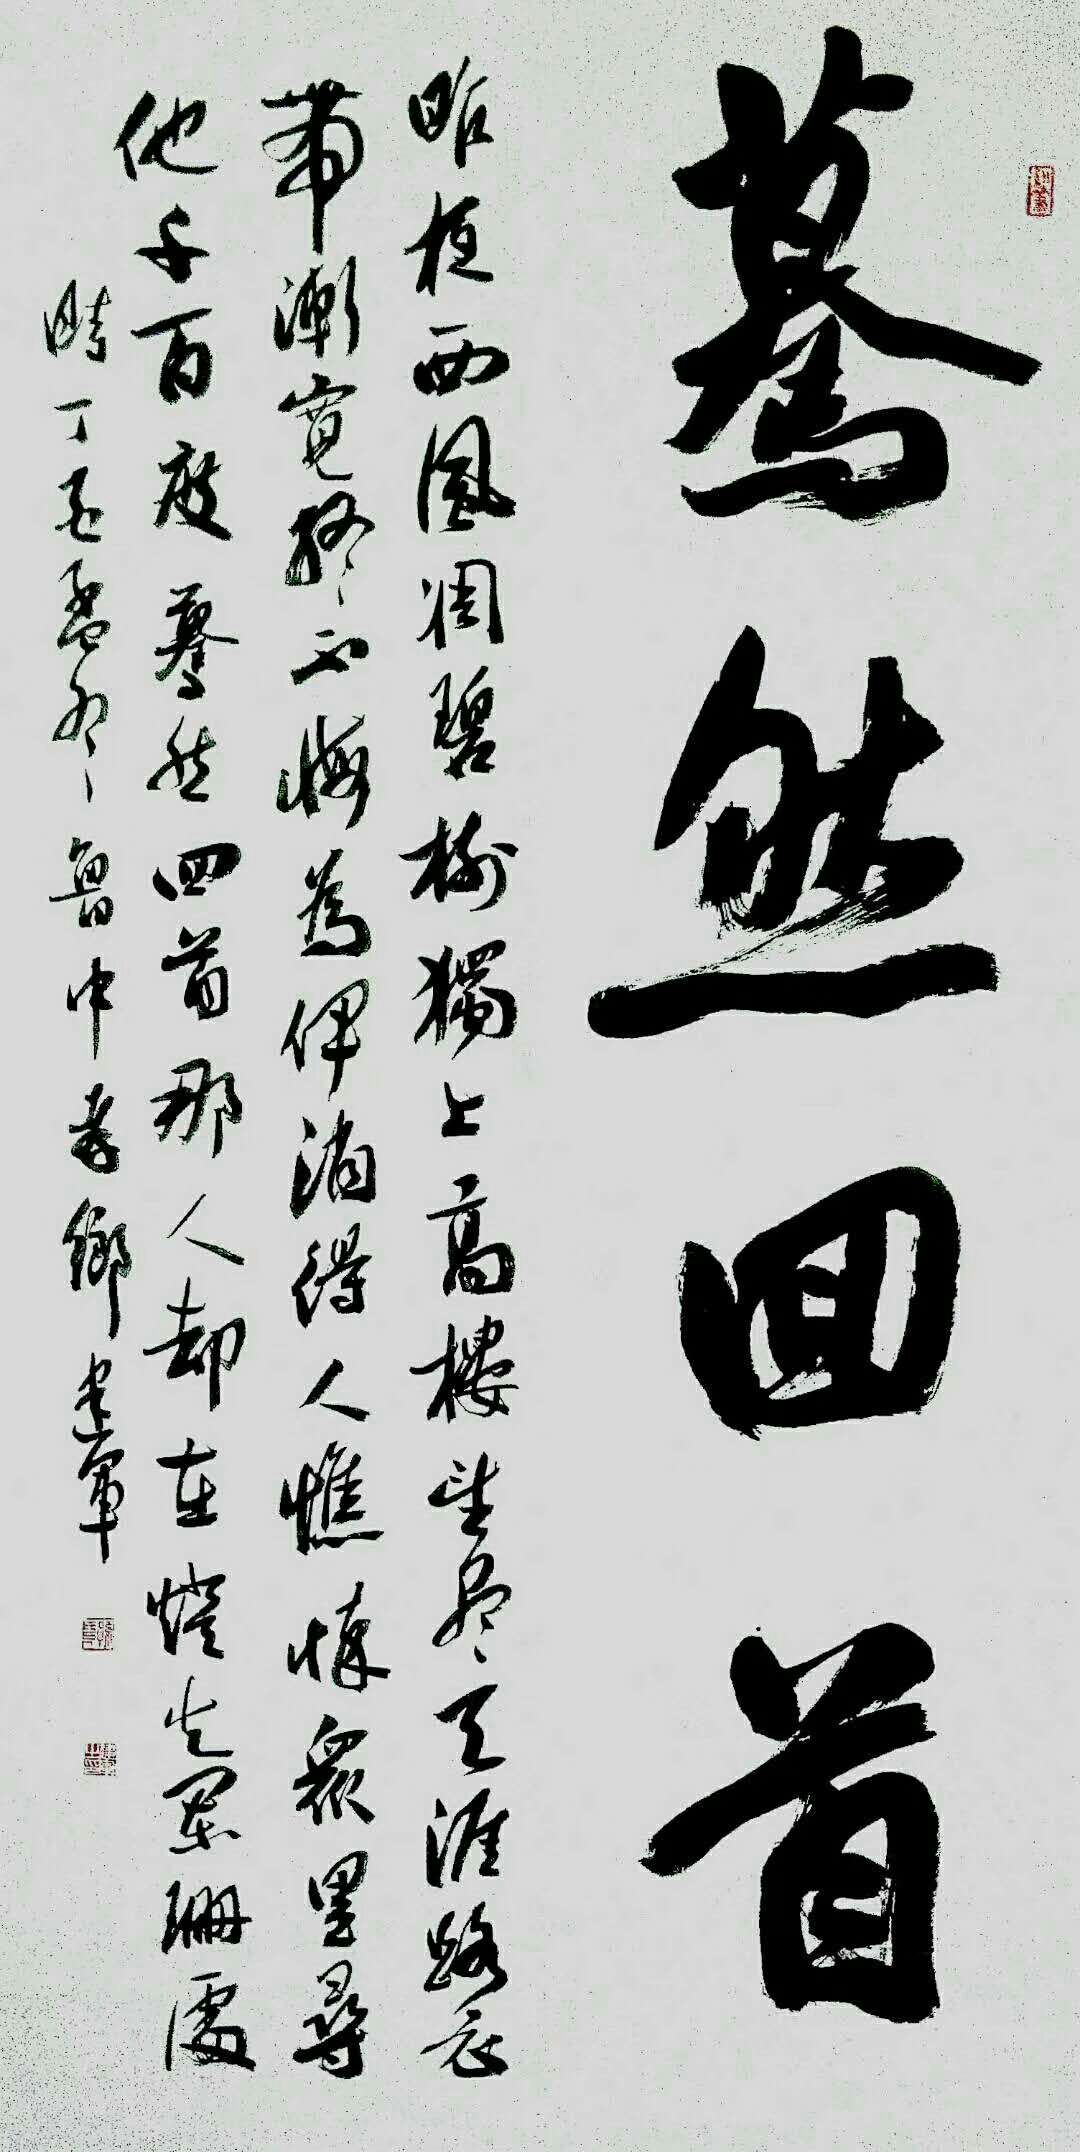 蓦然回首
昨夜西風凋碧樹獨上高樓望尽天涯路衣
帶漸寬終不悔為伊消得人憔悴眾里尋
他千百度驀然回首那人却在燈火闌珊處
時丁酉孟冬魯中孝鄉建軍